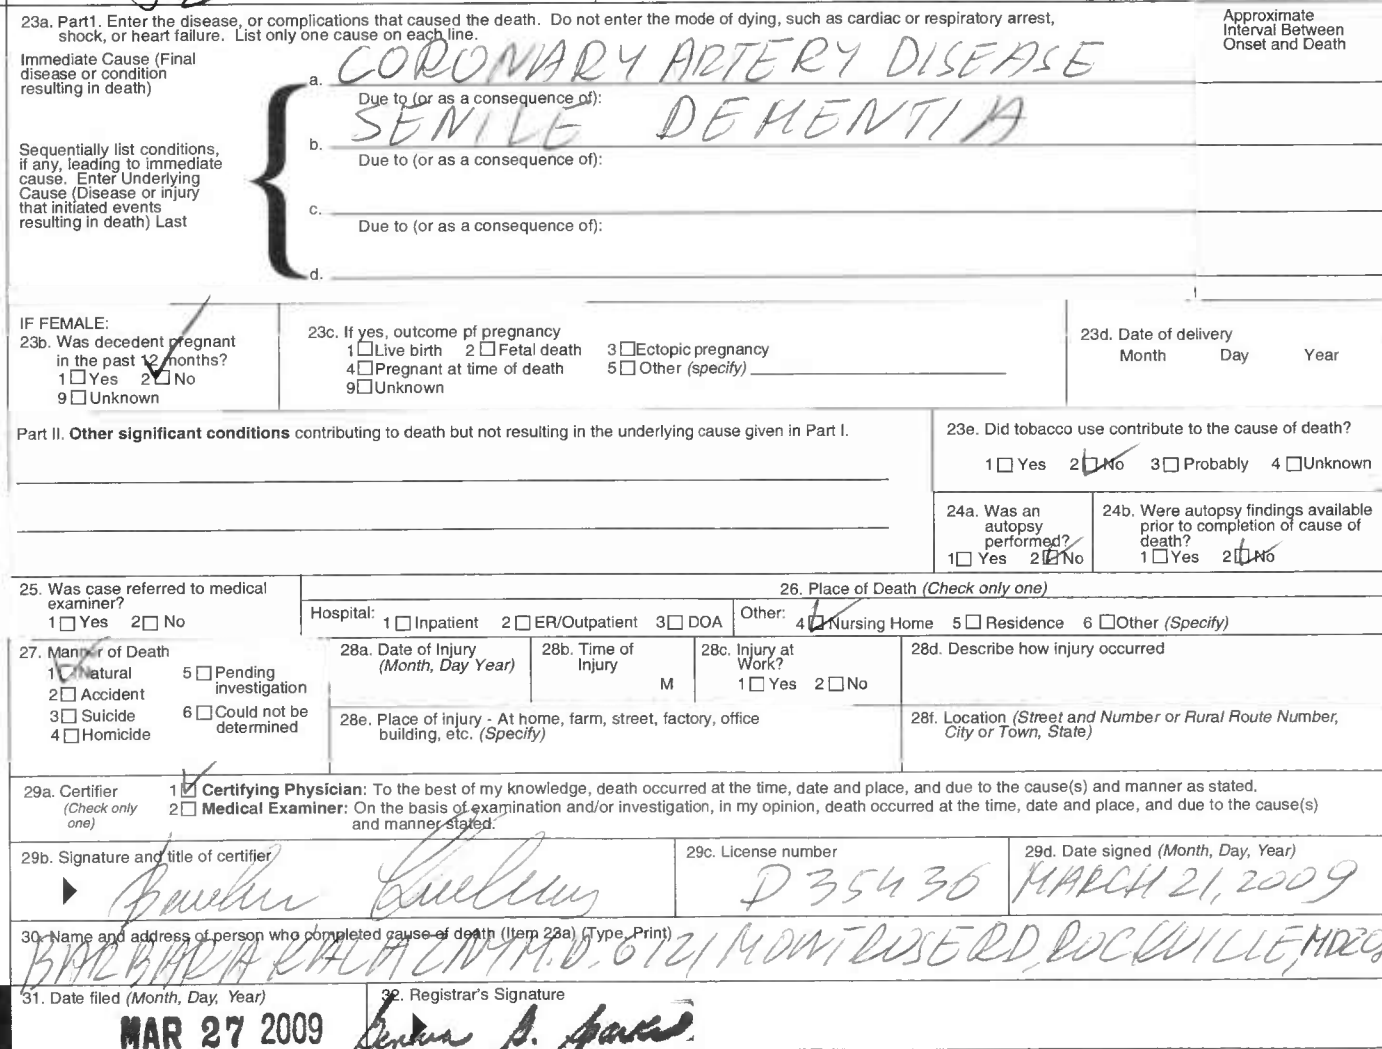 23a. Part1. Enter the disease, or complications that caused the death. Do not enter the mode of dying, such as cardiac or respiratory arrest,
shock, or heart failure. List only one cause on each line.
Approximate
Interval Between
Onset and Death
Immediate Cause (Final
disease or condition
resulting in death)
a. CORONARY ARTERY DISEASE
Due to (or as a consequence of):
b. SENILE DEMENTIA
Sequentially list conditions,
if any, leading to immediate
cause. Enter Underlying
Cause (Disease or injury
that initiated events
resulting in death) Last
Due to (or as a consequence of):
c.
Due to (or as a consequence of):
d.
IF FEMALE:
23b. Was decedent pregnant
in the past 12 months?
1 Yes 2 No
9 Unknown
23c. If yes, outcome pf pregnancy
1 Live birth 2 Fetal death 3 Ectopic pregnancy
4 Pregnant at time of death 5 Other (specify)
9 Unknown
23d. Date of delivery
Month Day Year
Part II. Other significant conditions contributing to death but not resulting in the underlying cause given in Part I.
23e. Did tobacco use contribute to the cause of death?
1 Yes 2 No 3 Probably 4 Unknown
24a. Was an
autopsy
performed?
1 Yes 2 No
24b. Were autopsy findings available
prior to completion of cause of
death?
1 Yes 2 No
25. Was case referred to medical
examiner?
1 Yes 2 No
26. Place of Death (Check only one)
Hospital: 1 Inpatient 2 ER/Outpatient 3 DOA Other: 4 Nursing Home 5 Residence 6 Other (Specify)
27. Manner of Death
1 Natural
2 Accident
3 Suicide
4 Homicide
5 Pending
investigation
6 Could not be
determined
28a. Date of Injury
(Month, Day Year)
28b. Time of
Injury
M
28c. Injury at
Work?
1 Yes 2 No
28d. Describe how injury occurred
28e. Place of injury - At home, farm, street, factory, office
building, etc. (Specify)
28f. Location (Street and Number or Rural Route Number,
City or Town, State)
29a. Certifier
(Check only
one)
1 Certifying Physician: To the best of my knowledge, death occurred at the time, date and place, and due to the cause(s) and manner as stated.
2 Medical Examiner: On the basis of examination and/or investigation, in my opinion, death occurred at the time, date and place, and due to the cause(s)
and manner stated.
29b. Signature and title of certifier
29c. License number
D 35436
29d. Date signed (Month, Day, Year)
MARCH 21, 2009
30. Name and address of person who completed cause of death (Item 23a) (Type, Print)
BARBARA M.D. 6121 MONTROSE RD, ROCKVILLE, MD
31. Date filed (Month, Day, Year)
MAR 27 2009
32. Registrar's Signature